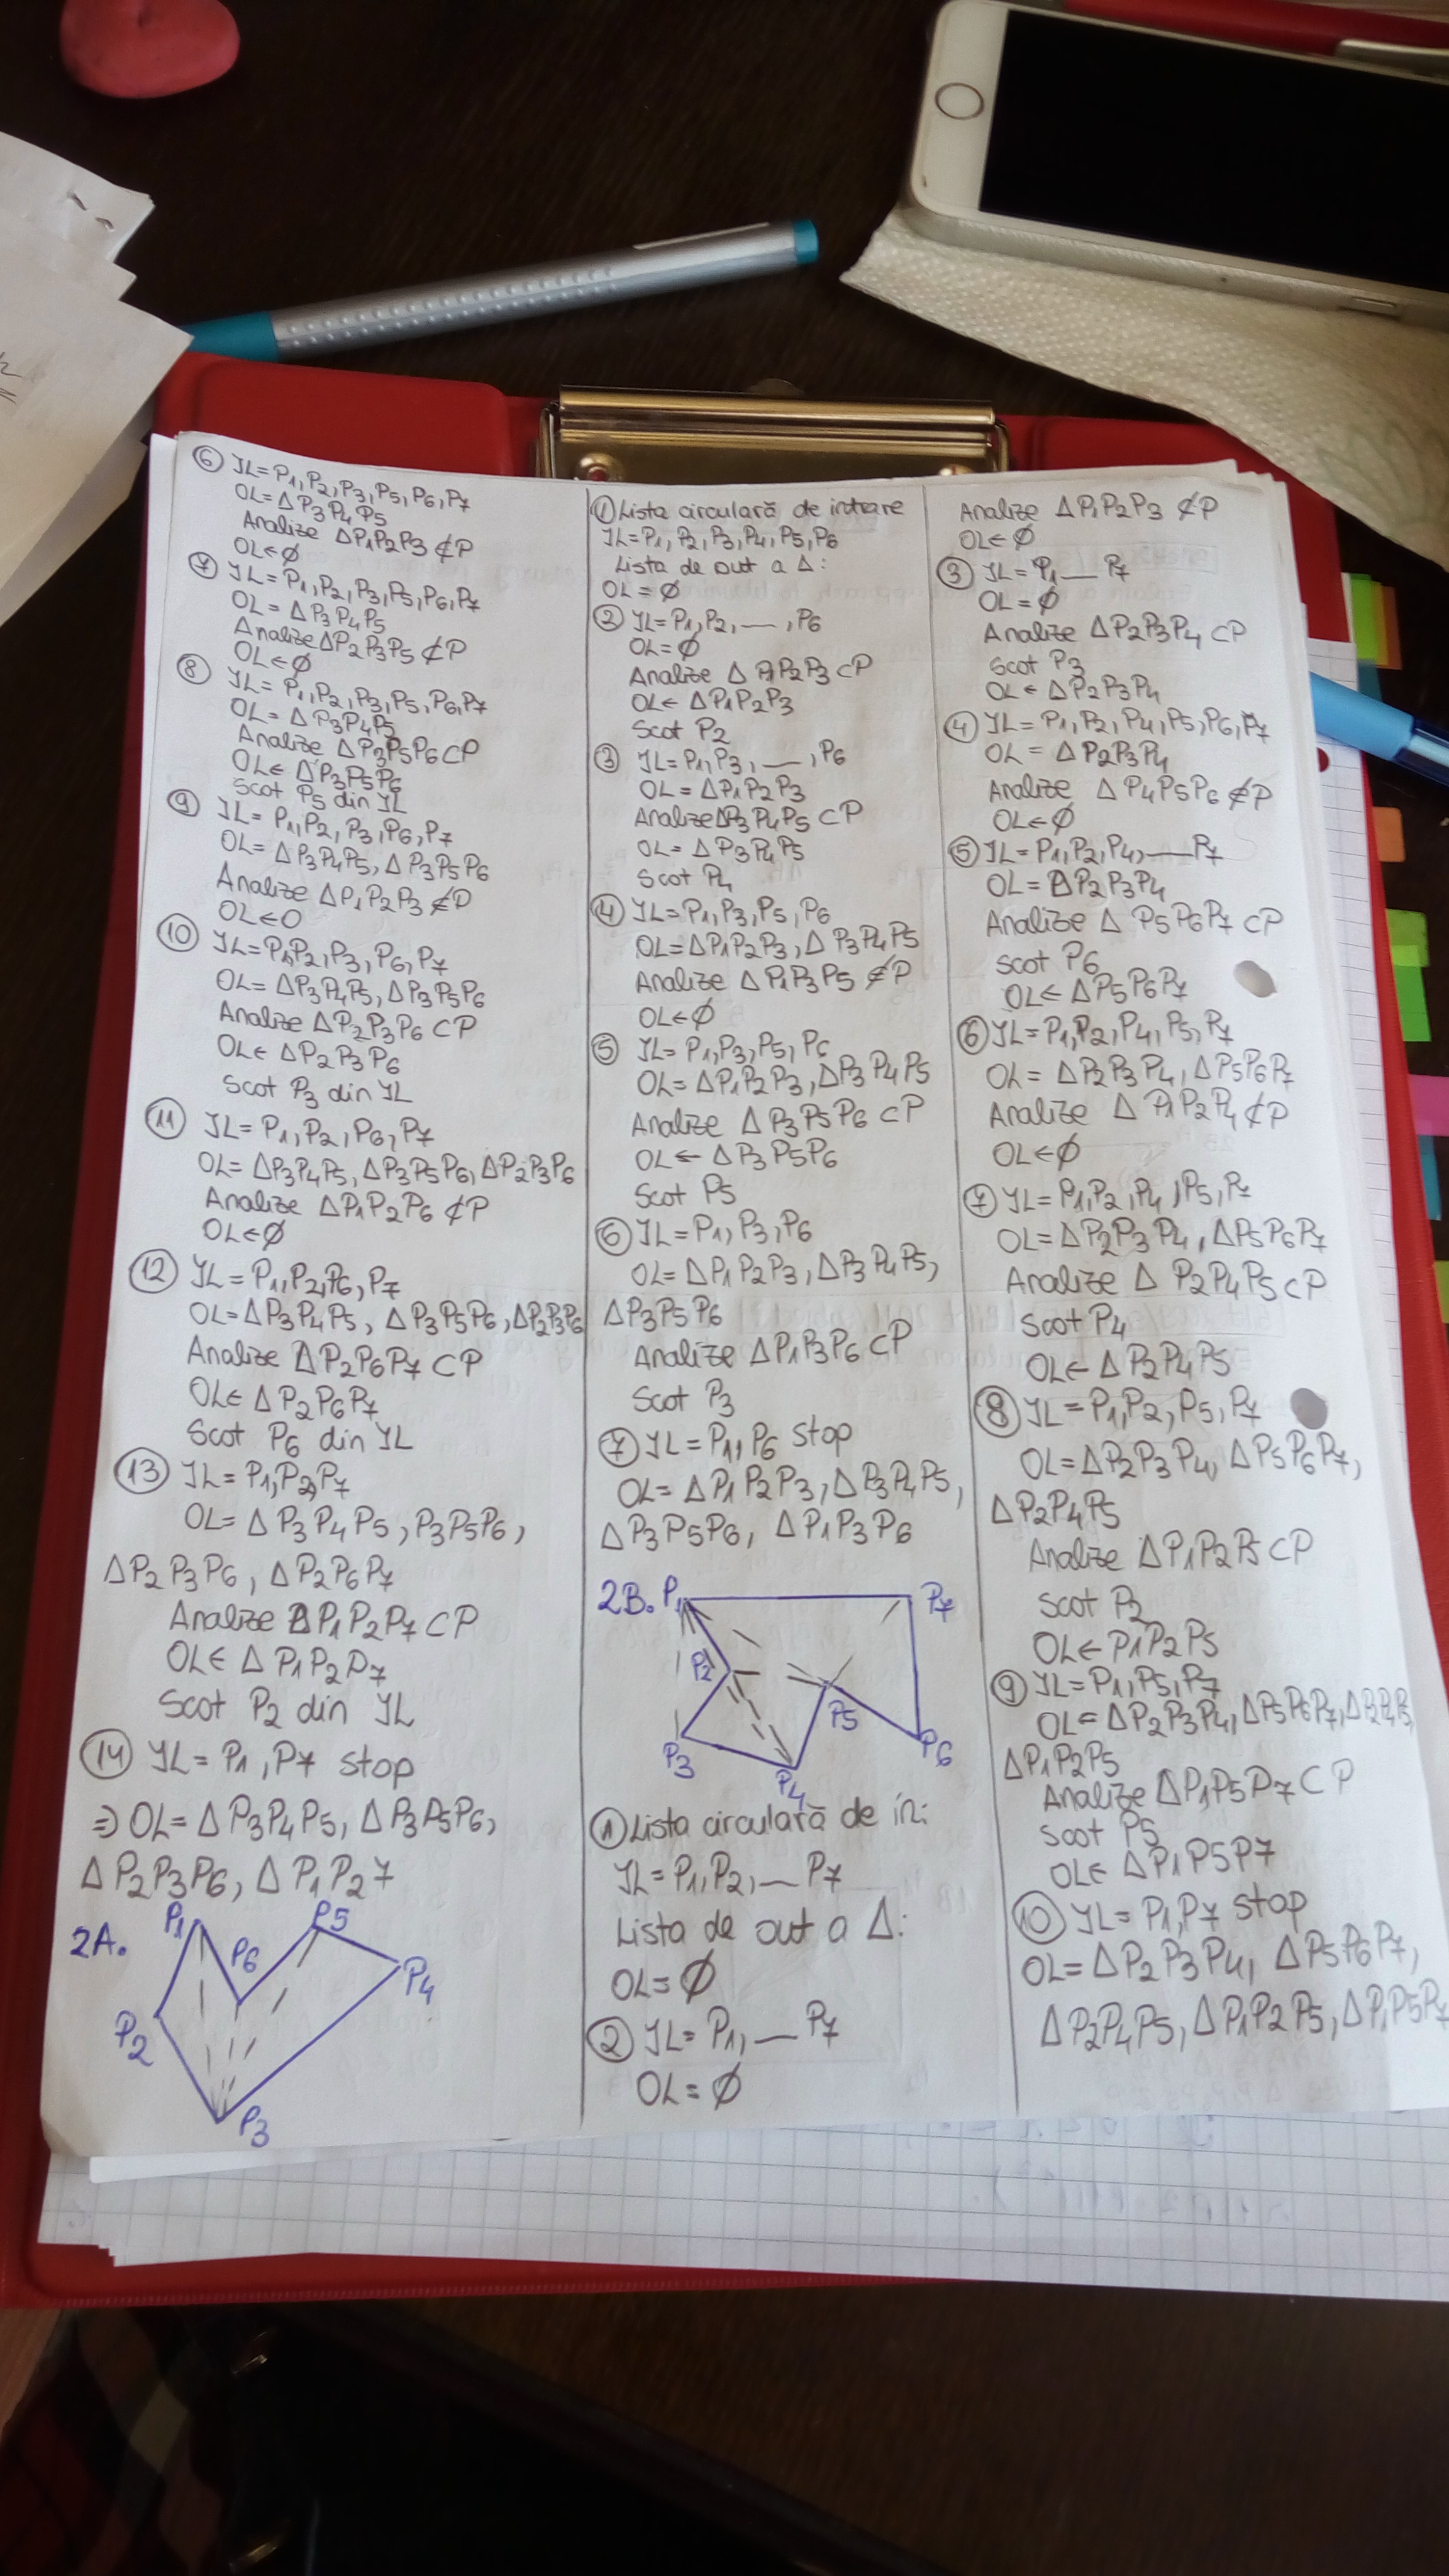 ⑥ IL=P1,P2,P3,P5,P6,P7
OL=ΔP3P4P5
Analize ΔP1P2P3 ⊄P
OL←∅
⑦ IL=P1,P2,P3,P5,P6,P7
OL=ΔP3P4P5
Analize ΔP2P3P5 ⊄P
OL←∅
⑧ IL=P1,P2,P3,P5,P6,P7
OL=ΔP3P4P5
Analize ΔP3P5P6 ⊂P
OL← ΔP3P5P6
Scot P5 din IL
⑨ IL=P1,P2,P3,P6,P7
OL=ΔP3P4P5, ΔP3P5P6
Analize ΔP1P2P3 ⊄P
OL←O
⑩ IL=P1,P2,P3,P6,P7
OL=ΔP3P4P5, ΔP3P5P6
Analize ΔP2P3P6 ⊂P
OL← ΔP2P3P6
Scot P3 din IL
⑪ IL=P1,P2,P6,P7
OL=ΔP3P4P5, ΔP3P5P6, ΔP2P3P6
Analize ΔP1P2P6 ⊄P
OL←∅
⑫ IL=P1,P2,P6,P7
OL=ΔP3P4P5, ΔP3P5P6, ΔP2P3P6
Analize ΔP2P6P7 ⊂P
OL← ΔP2P6P7
Scot P6 din IL
⑬ IL=P1,P2,P7
OL=ΔP3P4P5, P3P5P6,
ΔP2P3P6, ΔP2P6P7
Analize ΔP1P2P7 ⊂P
OL← ΔP1P2P7
Scot P2 din IL
⑭ IL=P1,P7 stop
⇒ OL=ΔP3P4P5, ΔP3P5P6,
ΔP2P3P6, ΔP1P27
2A.
P1
P5
P6
P4
P2
P3
① Lista circulară de intrare
IL=P1,P2,P3,P4,P5,P6
Lista de out a Δ:
OL=∅
② IL=P1,P2, — ,P6
OL=∅
Analize ΔP1P2P3 ⊂P
OL← ΔP1P2P3
Scot P2
③ IL=P1,P3, — ,P6
OL=ΔP1P2P3
Analize ΔP3P4P5 ⊂P
OL=ΔP3P4P5
Scot P4
④ IL=P1,P3,P5,P6
OL=ΔP1P2P3, ΔP3P4P5
Analize ΔP1P3P5 ⊄P
OL←∅
⑤ IL=P1,P3,P5,P6
OL=ΔP1P2P3, ΔP3P4P5
Analize ΔP3P5P6 ⊂P
OL← ΔP3P5P6
Scot P5
⑥ IL=P1,P3,P6
OL=ΔP1P2P3, ΔP3P4P5,
ΔP3P5P6
Analize ΔP1P3P6 ⊂P
Scot P3
⑦ IL=P1,P6 stop
OL=ΔP1P2P3, ΔP3P4P5,
ΔP3P5P6, ΔP1P3P6
2B. P1
P7
P2
P5
P3
P6
P4
① Lista circulară de in:
IL=P1,P2, — P7
Lista de out a Δ:
OL=∅
② IL=P1, — P7
OL=∅
Analize ΔP1P2P3 ⊄P
OL←∅
③ IL=P1 — P7
OL=∅
Analize ΔP2P3P4 ⊂P
Scot P3
OL← ΔP2P3P4
④ IL=P1,P2,P4,P5,P6,P7
OL=ΔP2P3P4
Analize ΔP4P5P6 ⊄P
OL←∅
⑤ IL=P1,P2,P4, — P7
OL=ΔP2P3P4
Analize ΔP5P6P7 ⊂P
Scot P6
OL← ΔP5P6P7
⑥ IL=P1,P2,P4,P5,P7
OL=ΔP2P3P4, ΔP5P6P7
Analize ΔP1P2P4 ⊄P
OL←∅
⑦ IL=P1,P2,P4,P5,P7
OL=ΔP2P3P4, ΔP5P6P7
Analize ΔP2P4P5 ⊂P
Scot P4
OL← ΔP2P4P5
⑧ IL=P1,P2,P5,P7
OL=ΔP2P3P4, ΔP5P6P7,
ΔP2P4P5
Analize ΔP1P2P5 ⊂P
Scot P2
OL← P1P2P5
⑨ IL=P1,P5,P7
OL=ΔP2P3P4, ΔP5P6P7, ΔP2P4P5,
ΔP1P2P5
Analize ΔP1P5P7 ⊂P
Scot P5
OL← ΔP1P5P7
⑩ IL=P1,P7 stop
OL=ΔP2P3P4, ΔP5P6P7,
ΔP2P4P5, ΔP1P2P5, ΔP1P5P7